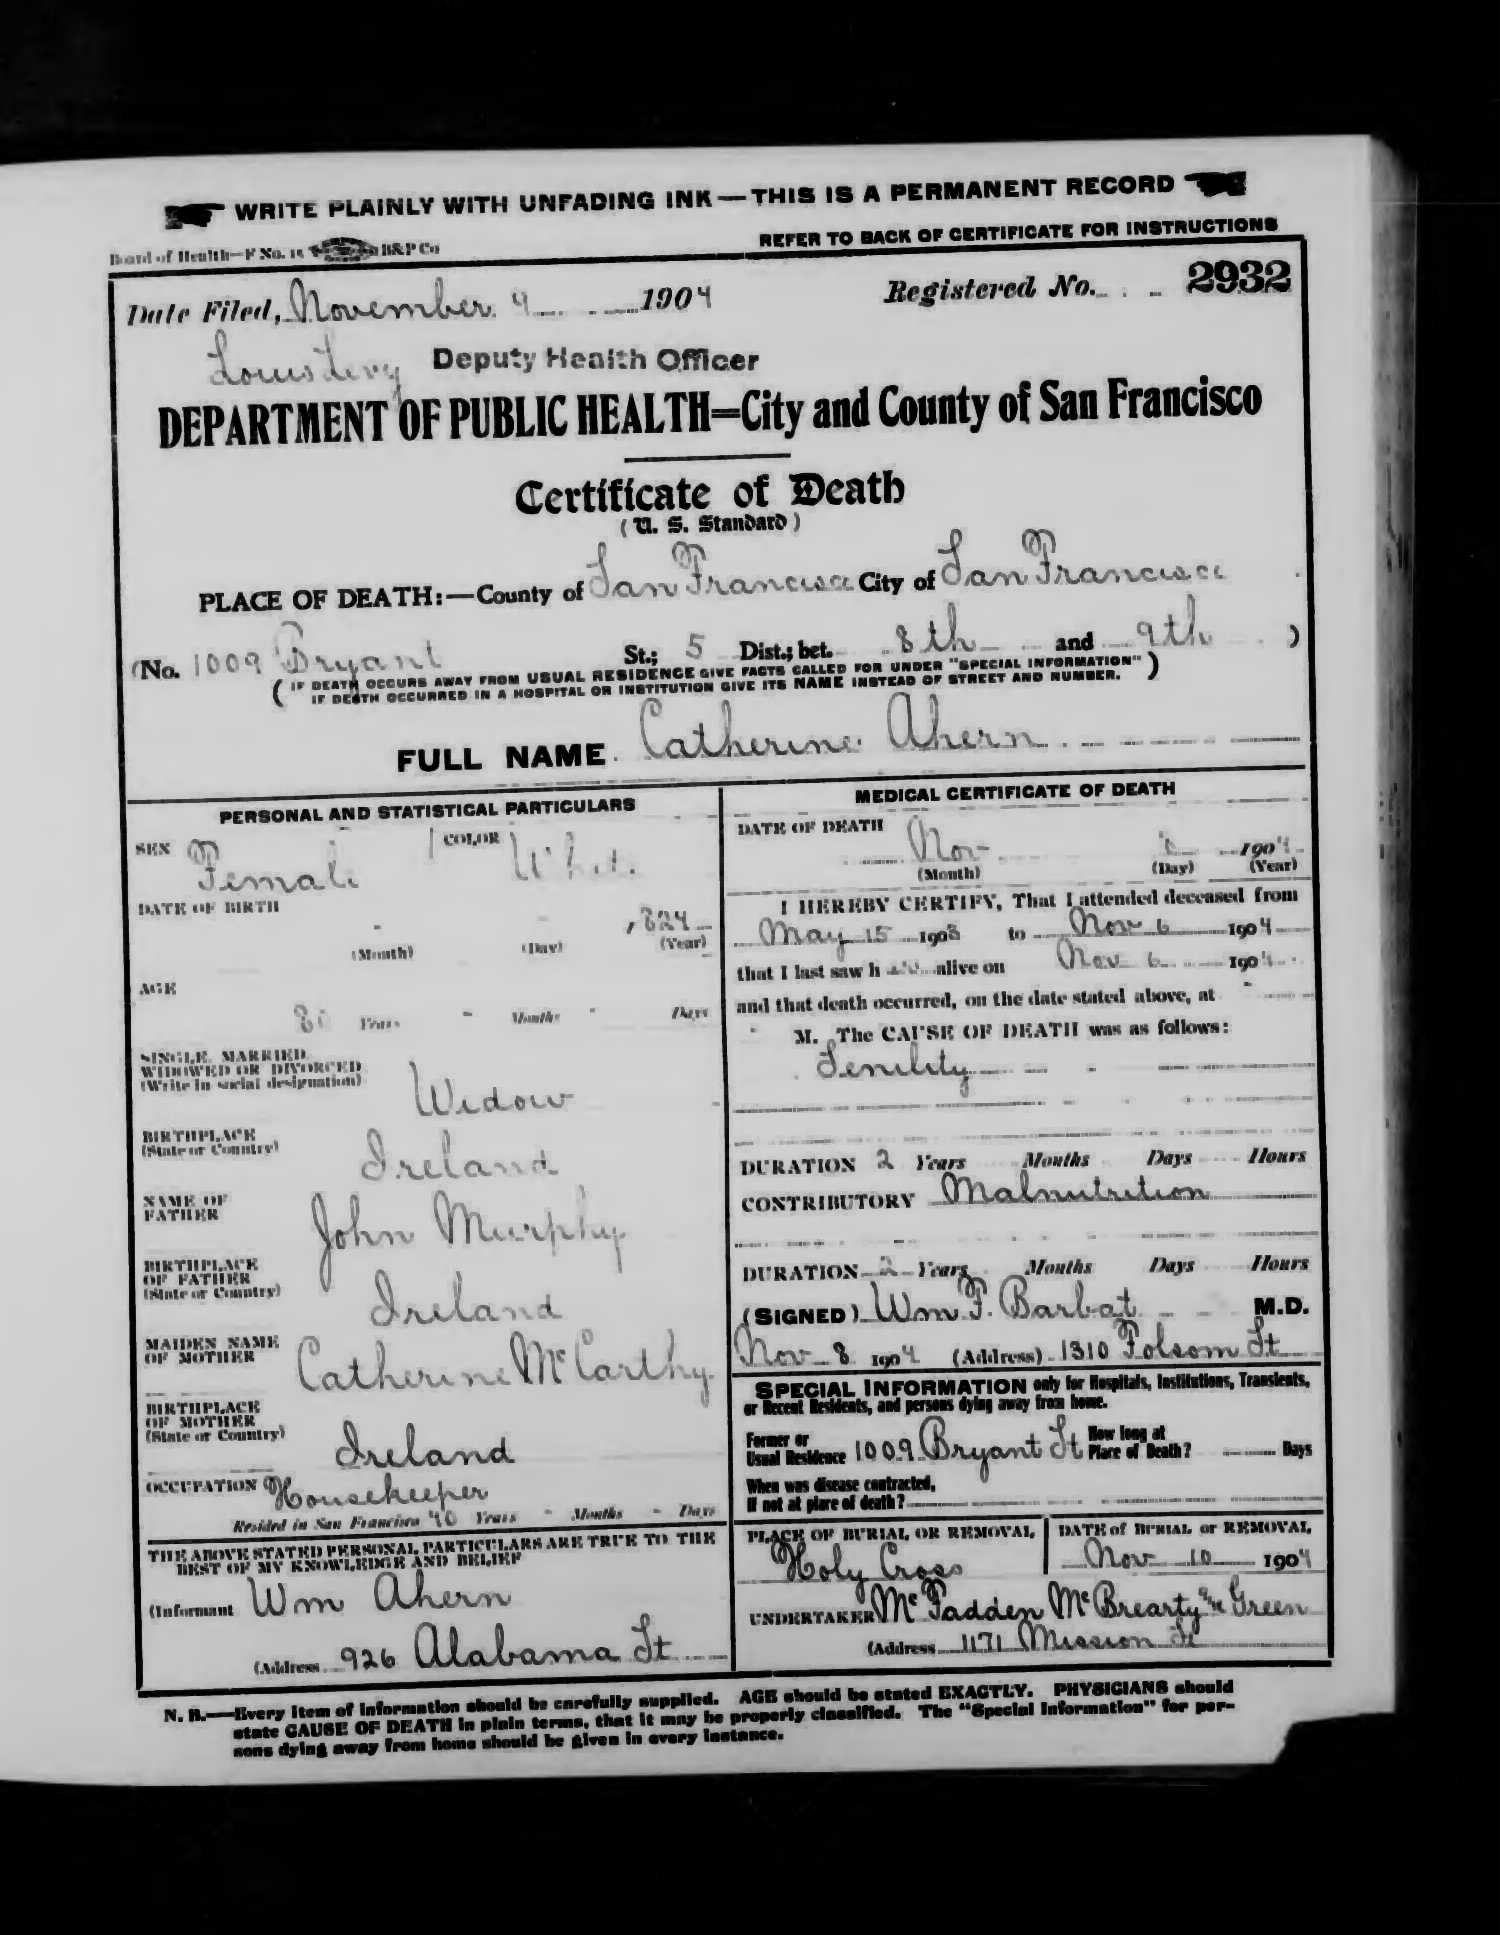 WRITE PLAINLY WITH UNFADING INK — THIS IS A PERMANENT RECORD
Board of Health—F No. 15 B&P Co
REFER TO BACK OF CERTIFICATE FOR INSTRUCTIONS
Date Filed, November 9 1904 Registered No. 2932
Louis Levy Deputy Health Officer
DEPARTMENT OF PUBLIC HEALTH=City and County of San Francisco
Certificate of Death
(U. S. Standard)
PLACE OF DEATH:—County of San Francisco City of San Francisco
(No. 1009 Bryant St.; 5 Dist.; bet. 8th and 9th )
( IF DEATH OCCURS AWAY FROM USUAL RESIDENCE GIVE FACTS CALLED FOR UNDER "SPECIAL INFORMATION" )
IF DEATH OCCURRED IN A HOSPITAL OR INSTITUTION GIVE ITS NAME INSTEAD OF STREET AND NUMBER.
FULL NAME Catherine Ahern
PERSONAL AND STATISTICAL PARTICULARS
SEX Female COLOR White
DATE OF BIRTH
1824
(Month) (Day) (Year)
AGE
80 Years - Months - Days
SINGLE, MARRIED,
WIDOWED OR DIVORCED
(Write in social designation)
Widow
BIRTHPLACE
(State or Country)
Ireland
NAME OF
FATHER
John Murphy
BIRTHPLACE
OF FATHER
(State or Country)
Ireland
MAIDEN NAME
OF MOTHER
Catherine McCarthy
BIRTHPLACE
OF MOTHER
(State or Country)
Ireland
OCCUPATION Housekeeper
Resided in San Francisco 40 Years - Months - Days
THE ABOVE STATED PERSONAL PARTICULARS ARE TRUE TO THE
BEST OF MY KNOWLEDGE AND BELIEF
(Informant Wm Ahern
(Address 926 Alabama St
MEDICAL CERTIFICATE OF DEATH
DATE OF DEATH
Nov 1904
(Month) (Day) (Year)
I HEREBY CERTIFY, That I attended deceased from
May 15 1903 to Nov 6 1904
that I last saw her alive on Nov 6 1904
and that death occurred, on the date stated above, at -
- M. The CAUSE OF DEATH was as follows:
Senility
DURATION 2 Years Months Days Hours
CONTRIBUTORY Malnutrition
DURATION 2 Years Months Days Hours
(SIGNED) Wm F. Barbat M.D.
Nov 8 1904 (Address) 1310 Folsom St
SPECIAL INFORMATION only for Hospitals, Institutions, Transients,
or Recent Residents, and persons dying away from home.
Former or
Usual Residence 1009 Bryant St How long at
Place of Death? Days
When was disease contracted,
If not at place of death?
PLACE OF BURIAL OR REMOVAL DATE of BURIAL or REMOVAL
Holy Cross Nov 10 1904
UNDERTAKER McFadden McBrearty & Green
(Address 1171 Mission St
N. B.—Every item of information should be carefully supplied. AGE should be stated EXACTLY. PHYSICIANS should
state CAUSE OF DEATH in plain terms, that it may be properly classified. The "Special Information" for per-
sons dying away from home should be given in every instance.